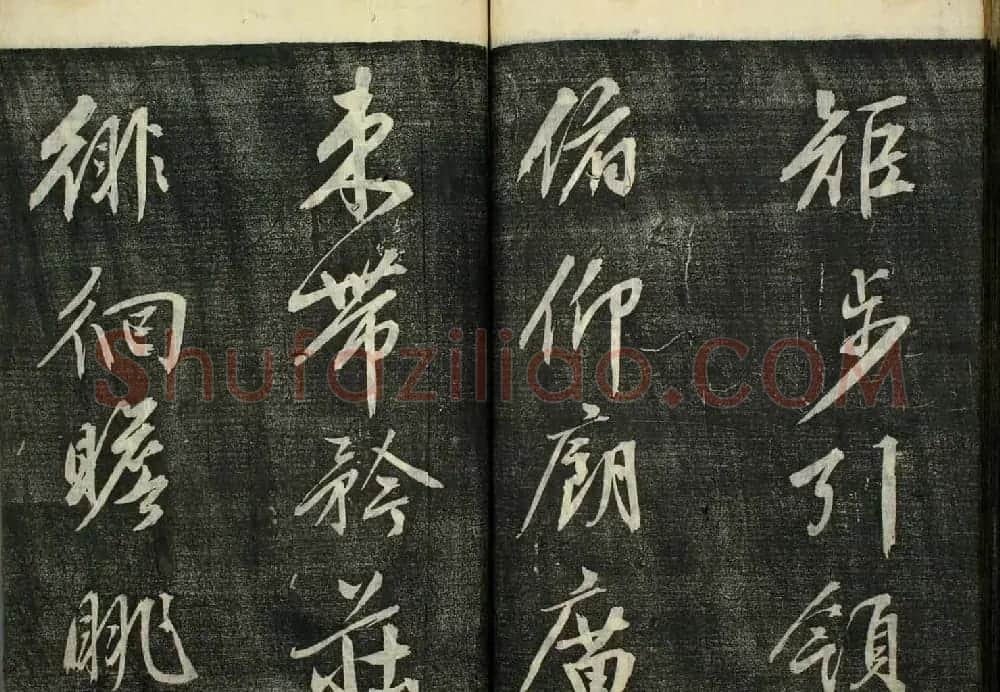 矩步引領
俯仰廊庿
束帶矜莊
徘徊瞻眺
Shufaziliao.COM